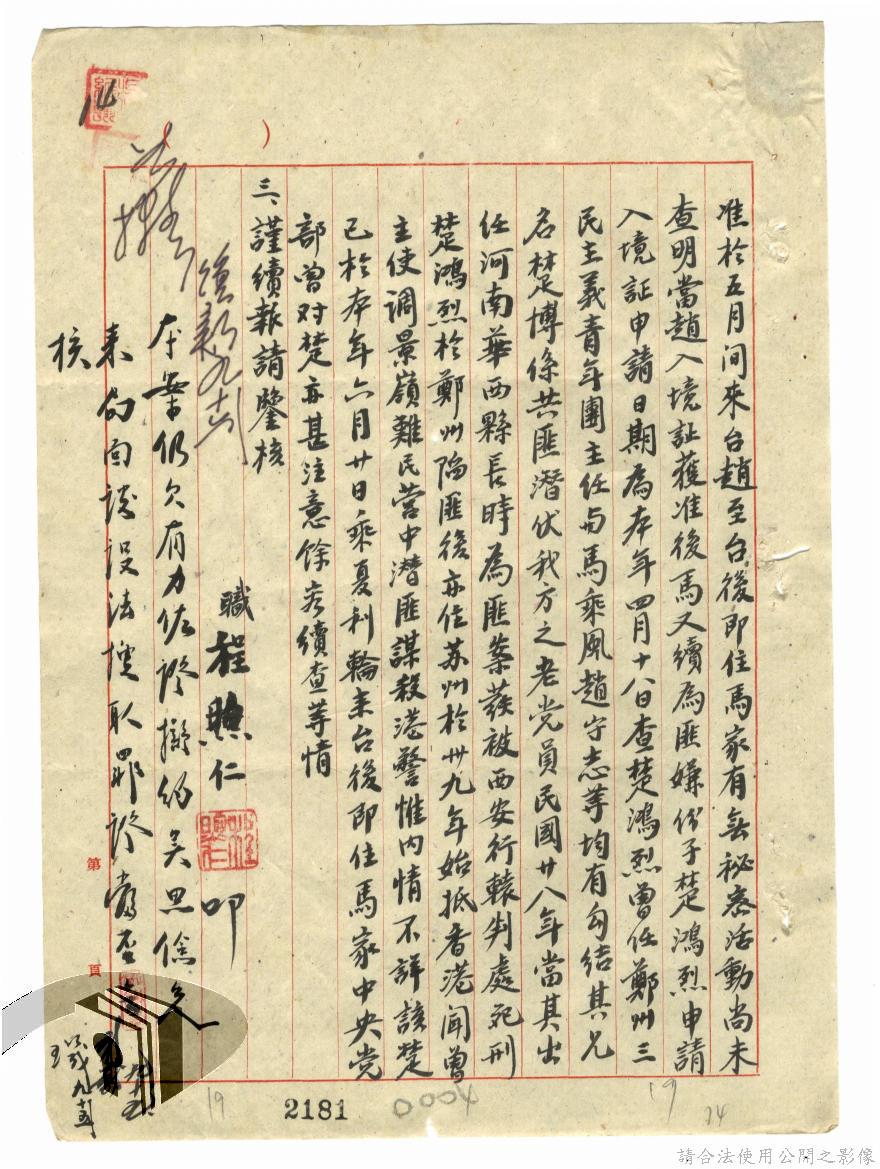 准於五月间來台趙至台後即住馬家有無秘密活動尚未
查明當趙入境証獲准後馬又續為匪嫌份子楚鴻烈申請
入境証申請日期為本年四月十八日查楚鴻烈曾任鄭州三
民主義青年團主任与馬乘風趙守志等均有勾结其兄
名楚博係共匪潛伏我方之老党員民國廿八年當其出
任河南華西縣長時為匪案發被西安行轅判處死刑
楚鴻烈於鄭州陷匪後亦住苏州於卅九年始抵香港聞曾
主使调景嶺難民营中潜匪謀殺港警惟内情不詳該楚
已於本年六月廿日乘夏利輪来台後即住馬家中央党
部曾对楚亦甚注意馀容續查等情
三、謹續報請鑒核
職 程煦仁 叩
本案仍欠有力佐證擬约吴思儉
来局面談設法獲取罪證當否
核
第 頁
2181
0004
19
19
14
14
請合法使用公開之影像